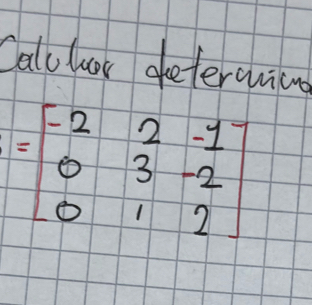 Calcular determina
= [-2 2 -1
0 3 -2
0 1 2]